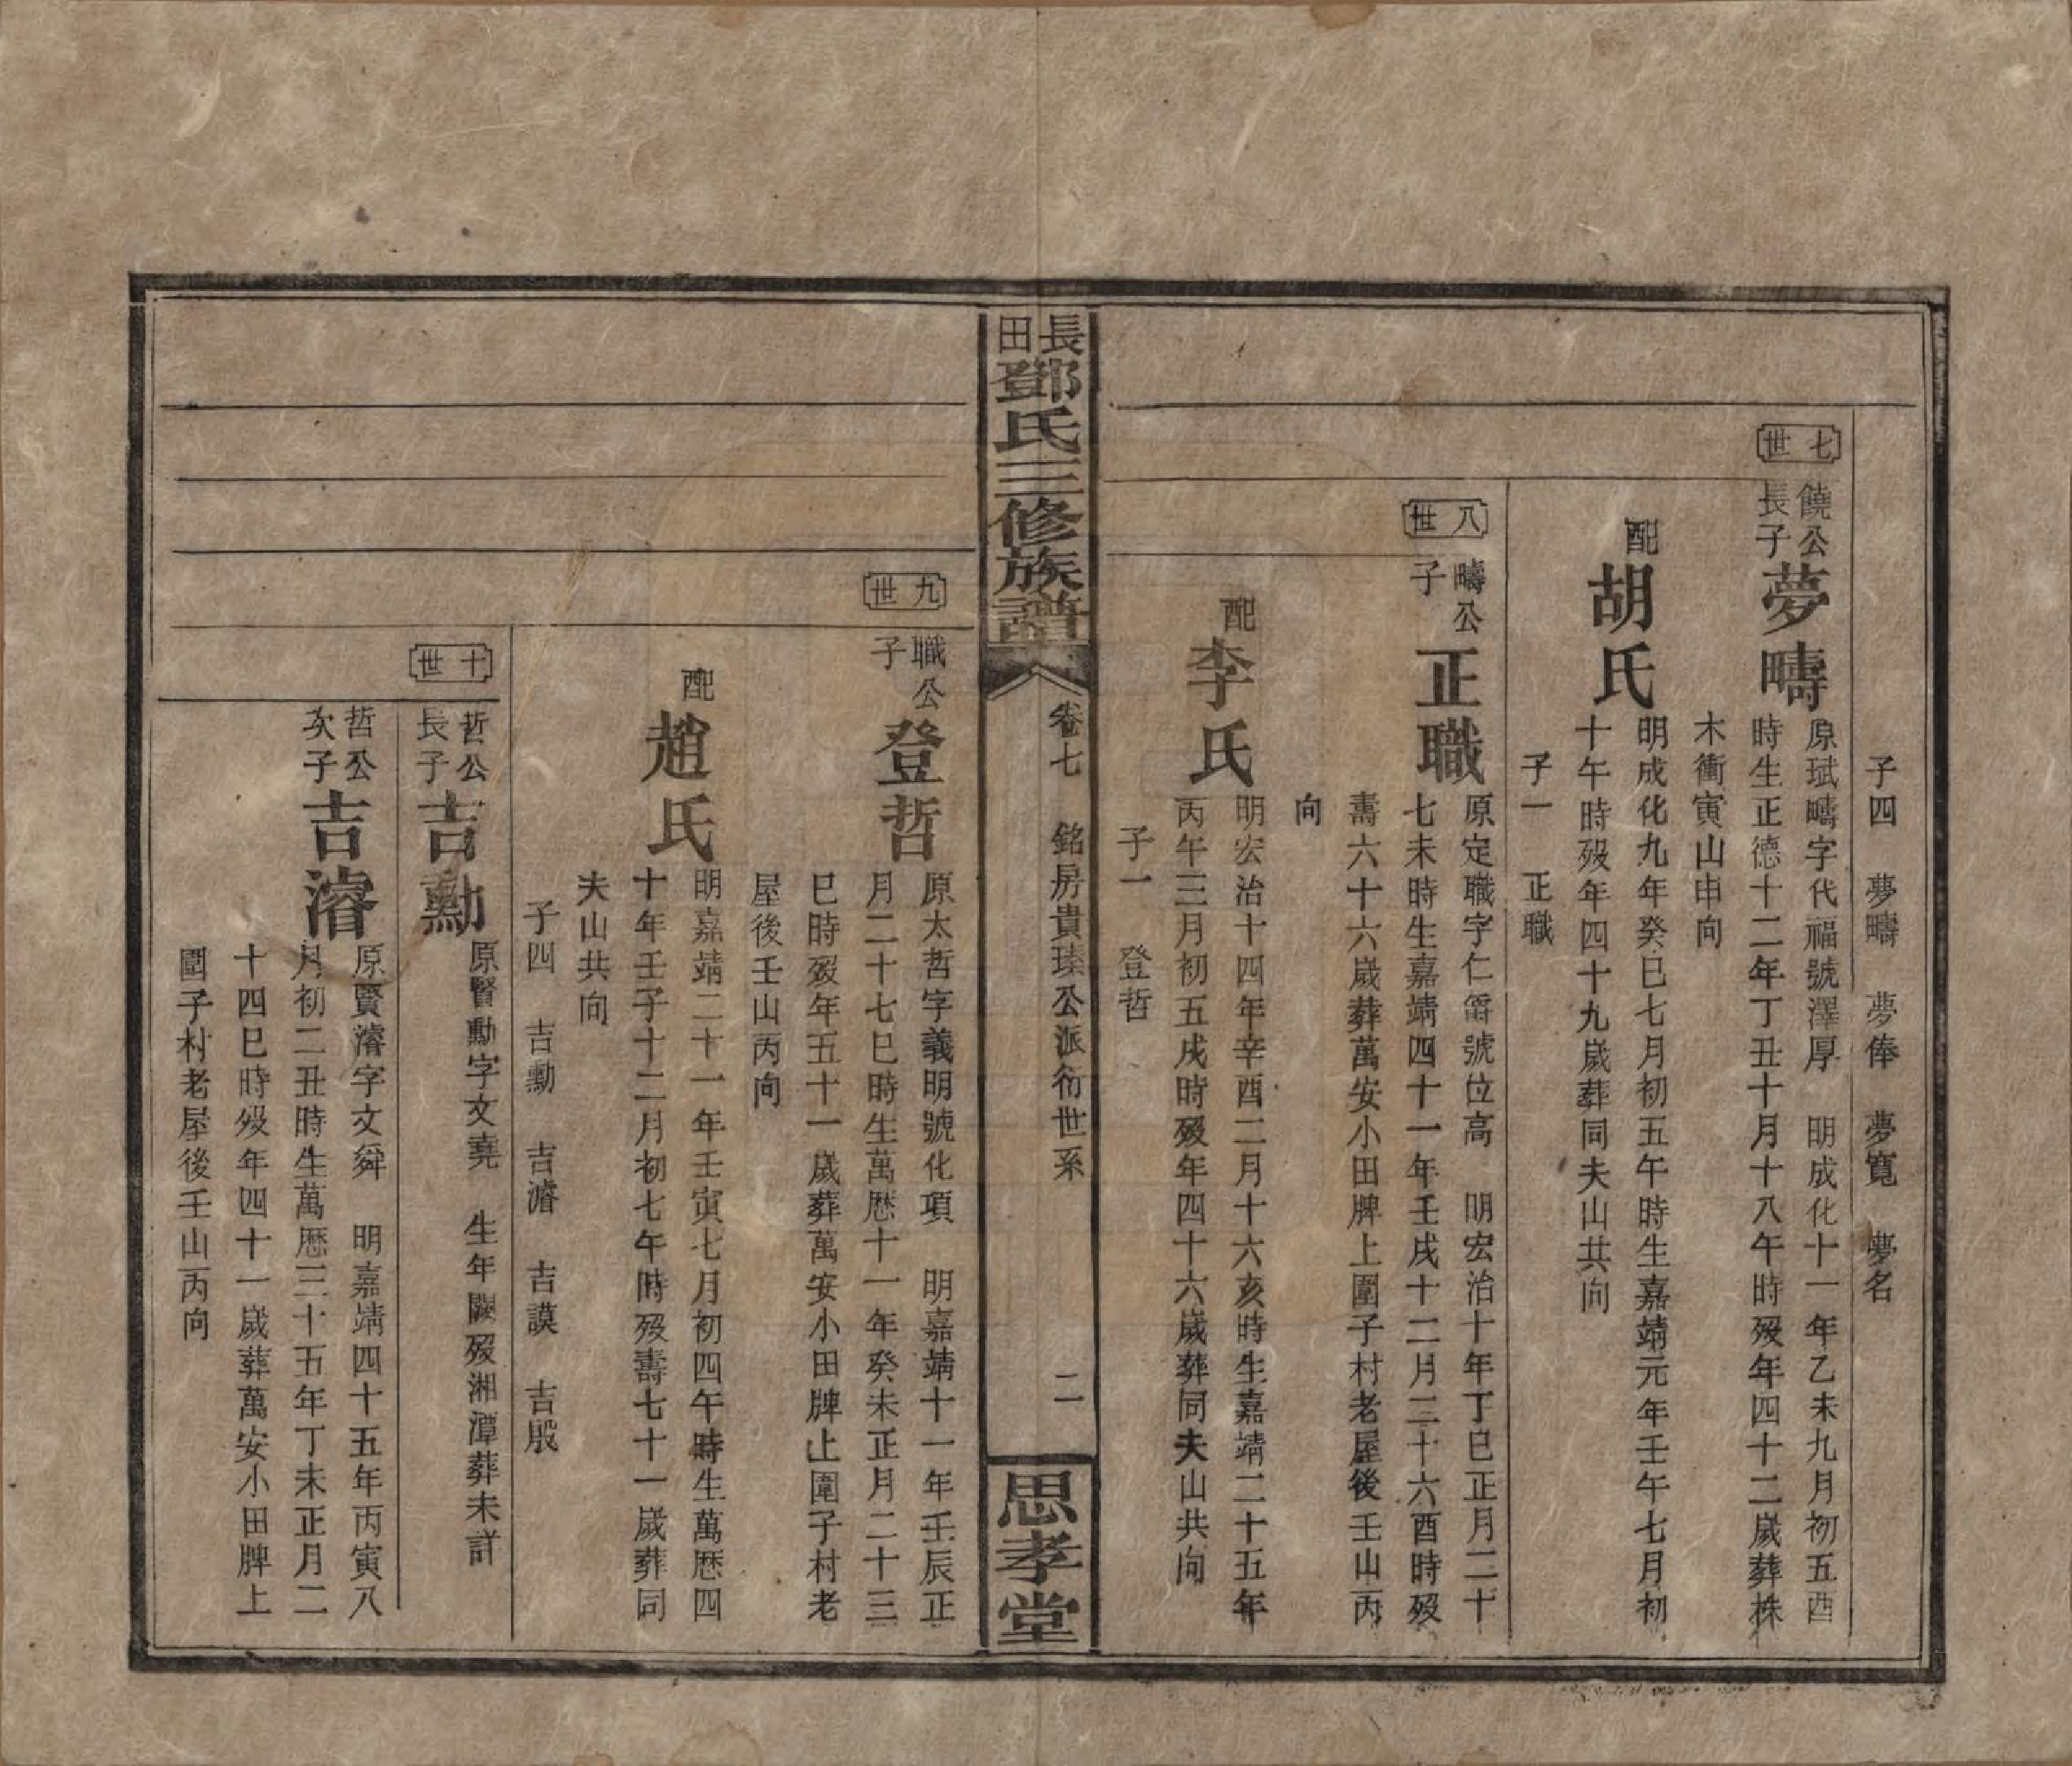 子四　夢疇　夢俸　夢寬　夢名
七世
饒公長子
夢疇
原珷疇字代福號澤厚　明成化十一年乙未九月初五酉
時生正德十二年丁丑十月十八午時歿年四十二歲葬株
木衝寅山申向
配
胡氏
明成化九年癸巳七月初五午時生嘉靖元年壬午七月初
十午時歿年四十九歲葬同夫山共向
子一　正職
八世
疇公子
正職
原定職字仁爵號位高　明宏治十年丁巳正月二十
七未時生嘉靖四十一年壬戌十二月三十六酉時歿
壽六十六歲葬萬安小田牌上圍子村老屋後壬山丙
向
配
李氏
明宏治十四年辛酉二月十六亥時生嘉靖二十五年
丙午三月初五戌時歿年四十六歲葬同夫山共向
子一　登哲
長田鄧氏三修族譜
卷七　銘房貴瑧公派衍世系　二
思孝堂
九世
職公子
登哲
原太哲字義明號化項　明嘉靖十一年壬辰正
月二十七巳時生萬歷十一年癸未正月二十三
巳時歿年五十一歲葬萬安小田牌上圍子村老
屋後壬山丙向
配
趙氏
明嘉靖二十一年壬寅七月初四午時生萬歷四
十年壬子十二月初七午時歿壽七十一歲葬同
夫山共向
子四　吉勳　吉濬　吉謨　吉殷
十世
哲公長子
吉勳
原賢勳字文堯　生年闕歿湘潭葬未詳
哲公次子
吉濬
原賢濬字文舜　明嘉靖四十五年丙寅八
月初二丑時生萬歷三十五年丁未正月二
十四巳時歿年四十一歲葬萬安小田牌上
圍子村老屋後壬山丙向